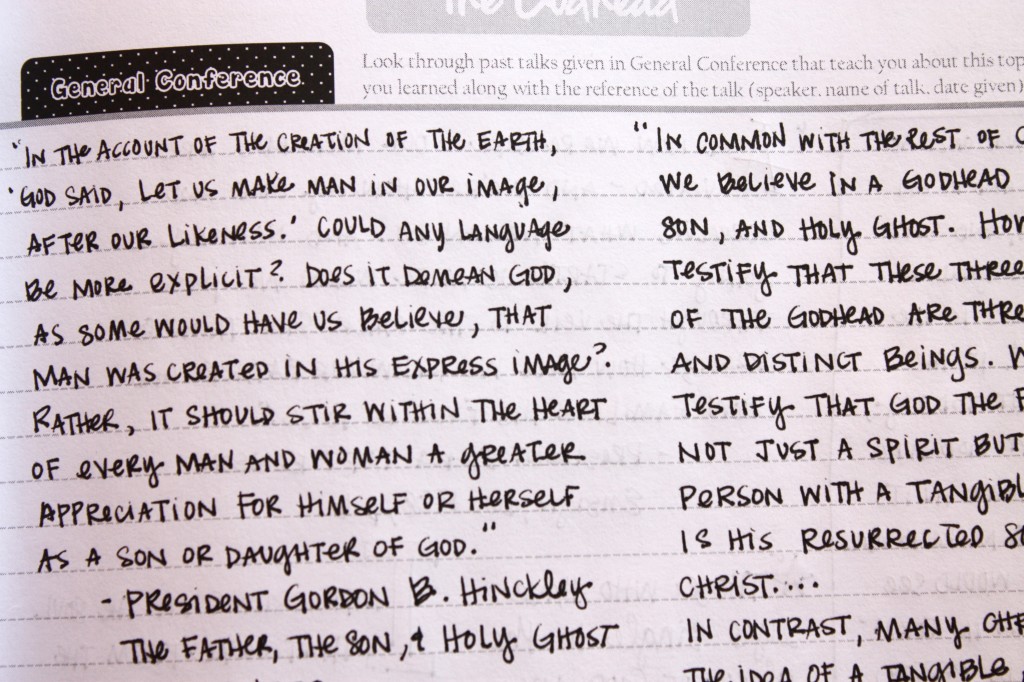 The Godhead
General Conference
Look through past talks given in General Conference that teach you about this top
you learned along with the reference of the talk (speaker, name of talk, date given)
"IN THE ACCOUNT OF THE CREATION OF THE EARTH,
'GOD SAID, LET US MAKE MAN IN OUR IMAGE,
AFTER OUR LIKENESS.' COULD ANY LANGUAGE
BE MORE EXPLICIT? DOES IT DEMEAN GOD,
AS SOME WOULD HAVE US BELIEVE, THAT
MAN WAS CREATED IN HIS EXPRESS IMAGE?
RATHER, IT SHOULD STIR WITHIN THE HEART
OF EVERY MAN AND WOMAN A GREATER
APPRECIATION FOR HIMSELF OR HERSELF
AS A SON OR DAUGHTER OF GOD."
- PRESIDENT GORDON B. HINCKLEY
THE FATHER, THE SON, & HOLY GHOST
"IN COMMON WITH THE REST OF
WE BELIEVE IN A GODHEAD
SON, AND HOLY GHOST. HOW
TESTIFY THAT THESE THREE
OF THE GODHEAD ARE THRE
AND DISTINCT BEINGS. W
TESTIFY THAT GOD THE F
NOT JUST A SPIRIT BUT
PERSON WITH A TANGIBL
IS HIS RESURRECTED S
CHRIST....
IN CONTRAST, MANY CHR
THE IDEA OF A TANGIBLE